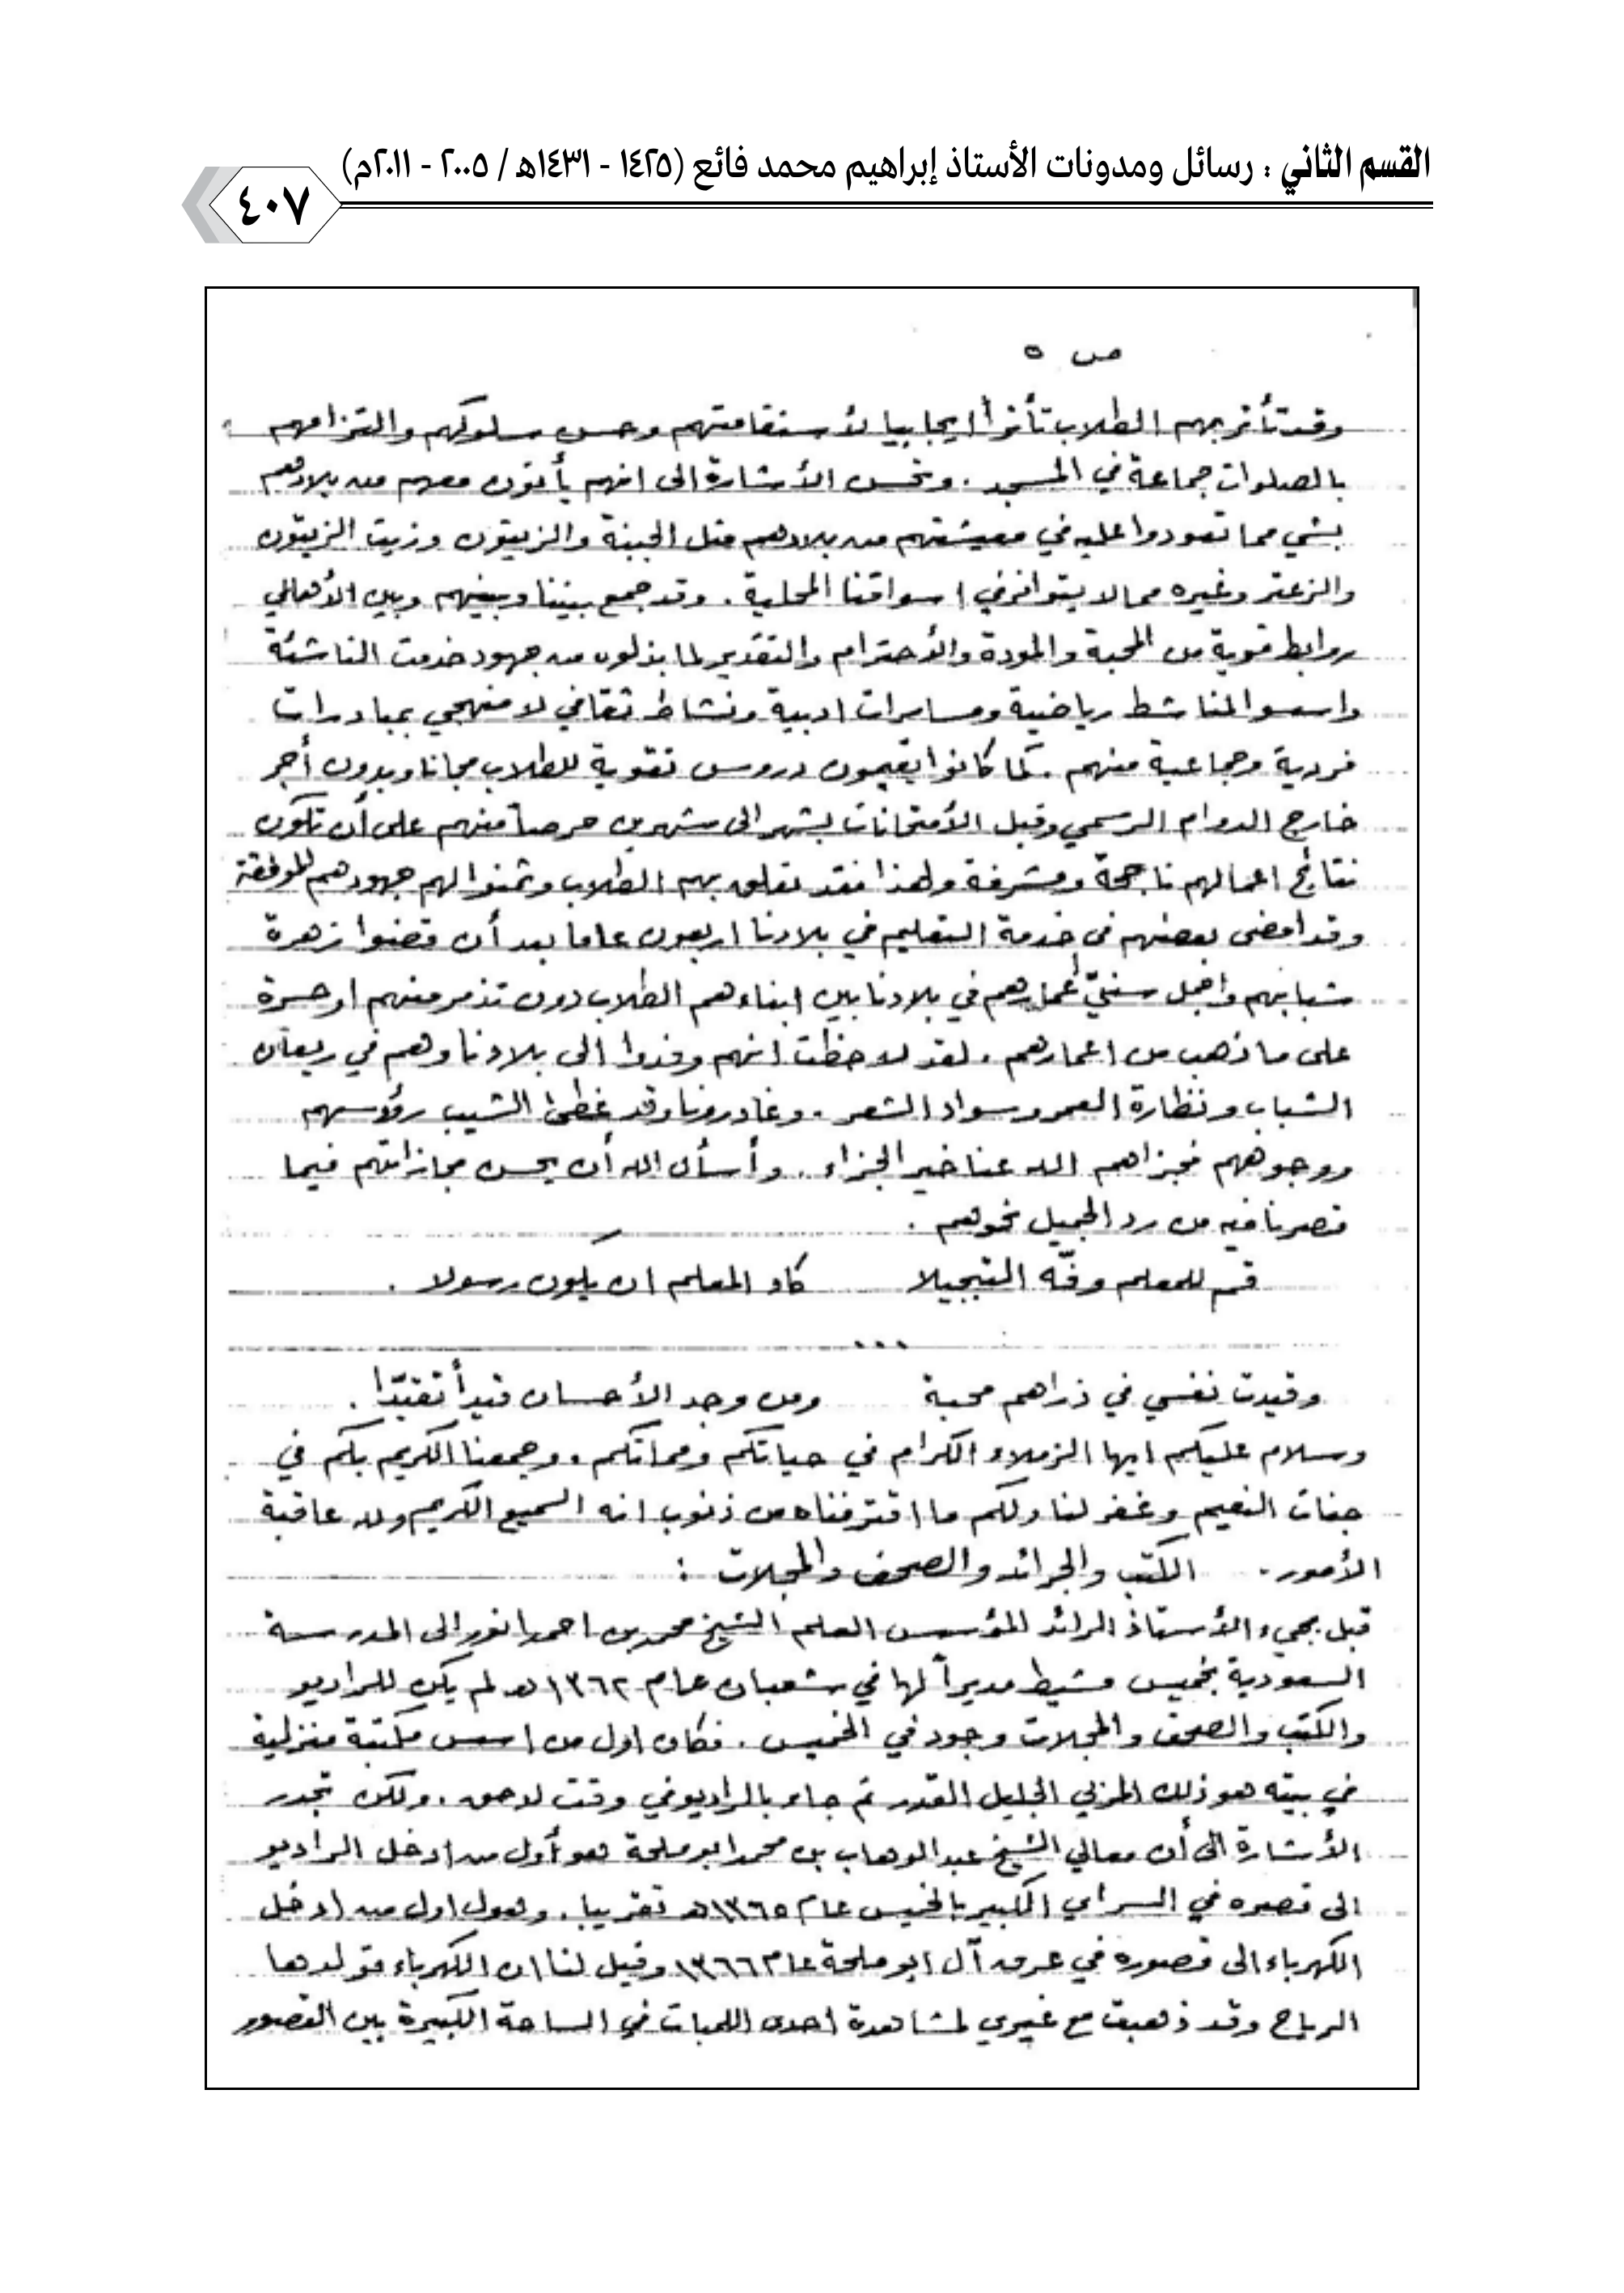 القسم الثاني : رسائل ومدونات الأستاذ إبراهيم محمد فائع (١٤٢٥ - ١٤٣١هـ / ٢٠٠٥ - ٢٠١١م)
٤٠٧
ص ٥
وقد تأثر بهم الطلاب تأثراً ايجابيا لأستقامتهم وحسن سلوكهم والتزامهم
بالصلوات جماعة في المسجد . وتحسن الأشارة الى انهم يأتون معهم من بلادهم
بشي مما تعودوا عليه في معيشتهم من بلادهم مثل الجبنة والزيتون وزيت الزيتون
والزعتر وغيره مما لا يتوافر في اسواقنا المحلية . وقد جمع بيننا وبينهم وبين الأهالي
روابط قوية من المحبة والمودة والأحترام والتقدير لما بذلوه من جهود خدمت الناشئة
واسسوا لمناشط رياضية ومسامرات ادبية ونشاط ثقافي لا منهجي بمبادرات
فردية وجماعية منهم . كما كانوا يقيمون دروس تقوية للطلاب مجانا وبدون أجر
خارج الدوام الرسمي وقبل الأمتحانات بشهر الى شهرين حرصاً منهم على أن تكون
نتائج اعمالهم ناجحة ومشرفة ولهذا فقد تعلق بهم الطلاب وثمنوا لهم جهودهم الموفقة
وقد امضى بعضهم في خدمة التعليم في بلادنا اربعون عاما بعد أن قضوا زهرة
شبابهم واجمل سنيّ أعمارهم في بلادنا بين ابناءهم الطلاب دون تذمر منهم او حسرة
على ما ذهب من اعمارهم . لقد لاحظت انهم وفدوا الى بلادنا وهم في ريعان
الشباب ونظارة العمر وسواد الشعر . وغادرونا وقد غطى الشيب رؤسهم
ووجوههم فجزاهم الله عنا خير الجزاء . وأسأل الله أن يحسن مجازاتهم فيما
قصرنا فيه من رد الجميل نحوهم .
قم للمعلم وفّه التبجيلا كاد المعلم ان يكون رسولا .
...
وقيدت نفسي في ذراهم محبة ومن وجد الأحسان قيداً تقيّدا .
وسلام عليكم ايها الزملاء الكرام في حياتكم ومماتكم . وجمعنا الكريم بكم في
جنات النعيم وغفر لنا ولكم ما اقترفناه من ذنوب انه السميع الكريم وله عاقبة
الأمور . الكتب والجرائد والصحف والمجلات :
قبل مجيء الأستاذ الرائد المؤسس العلم الشيخ محمد بن احمد انور الى المدرسة
السعودية بخميس مشيط مديراً لها في شعبان عام ١٣٦٢ هـ لم يكن للراديو
والكتب والصحف والمجلات وجود في الخميس . فكان اول من اسس مكتبة منزلية
في بيته هو ذلك المربي الجليل القدر ثم جاء بالراديو في وقت لاحق . ولكن تجدر
الأشارة الى أن معالي الشيخ عبد الوهاب بن محمد ابو ملحة هو أول من ادخل الراديو
الى قصره في السراي الكبير بالخميس عام ١٣٦٥هـ تقريبا . وهو اول من ادخل
الكهرباء الى قصوره في عرق آل ابو ملحة عام ١٣٦٦ وقيل لنا ان الكهرباء تولدها
الرياح وقد ذهبت مع غيري لمشاهدة احدى اللمبات في الساحة الكبيرة بين القصور